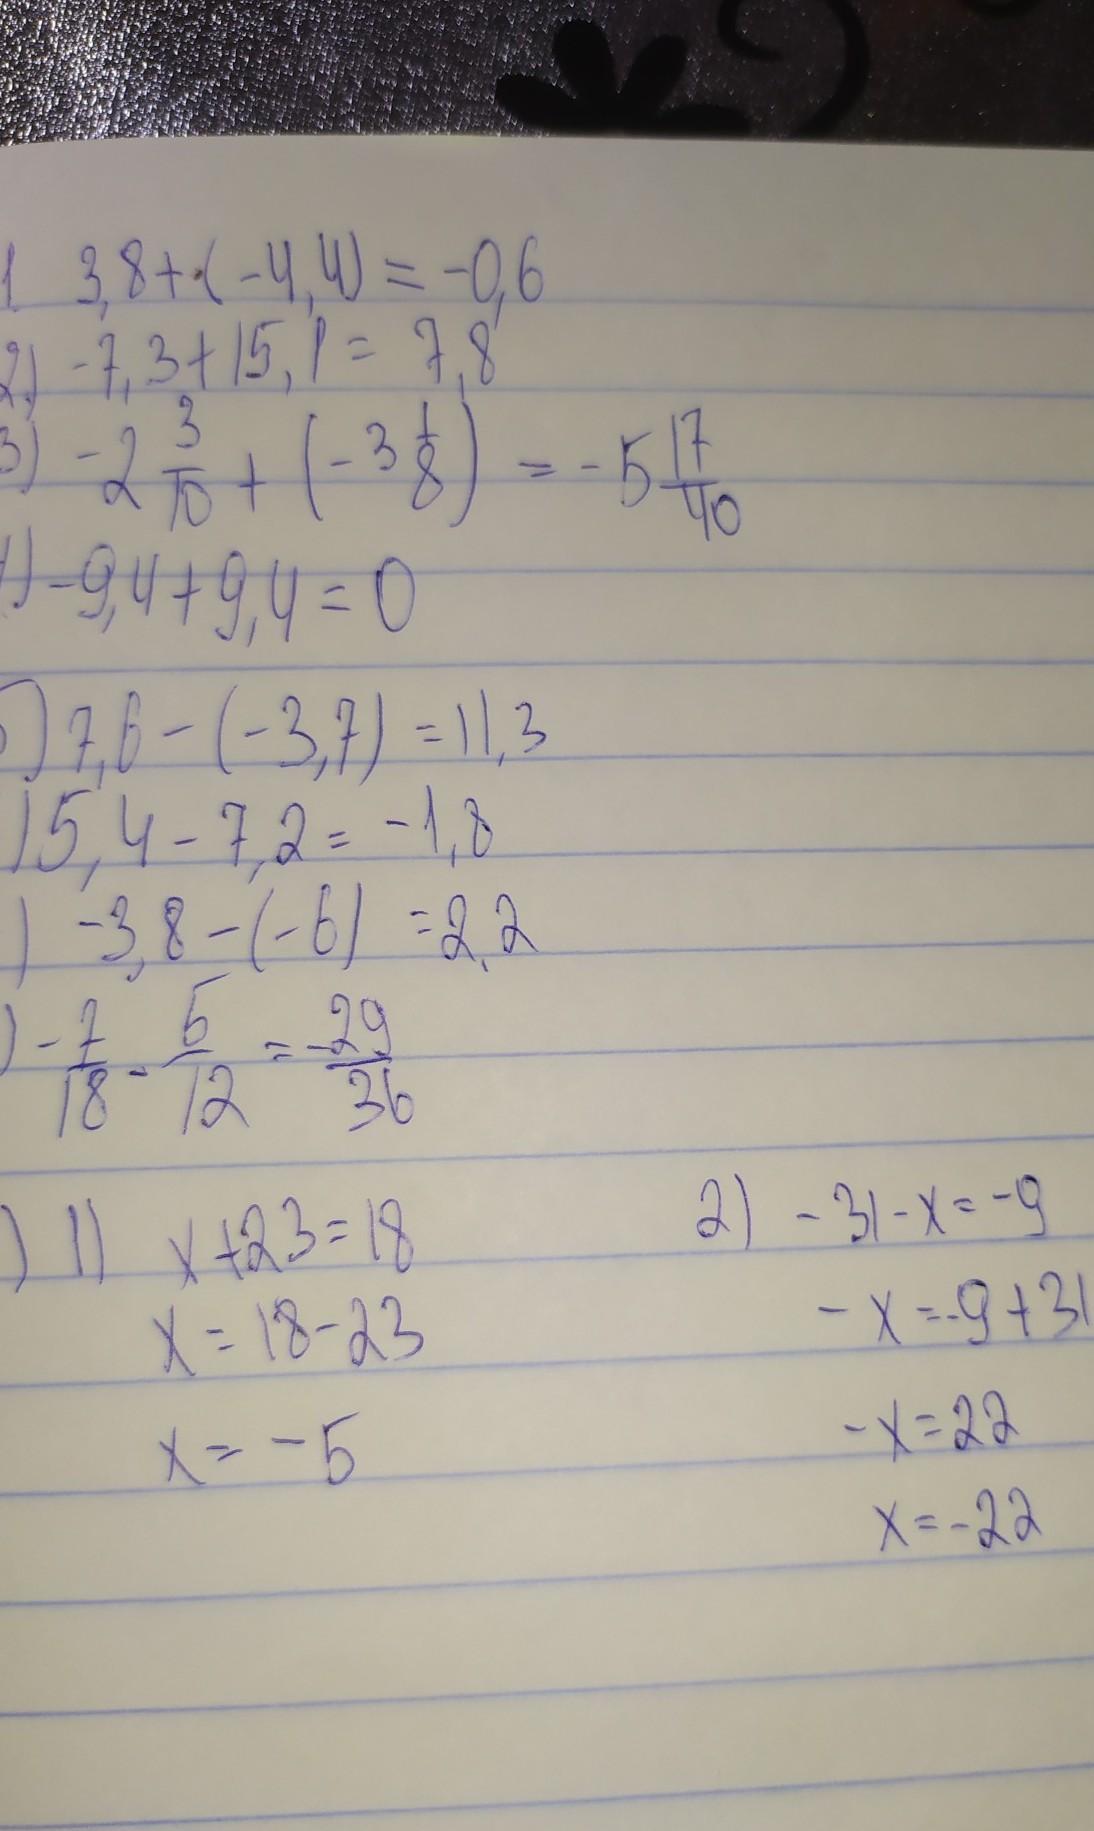 1 3,8+(-4,4) = -0,6
2) -7,3+15,1 = 7,8
3) -2 3/10 + (-3 1/8) = -5 17/40
) -9,4+9,4=0
5) 7,6-(-3,7) =11,3
) 5,4-7,2= -1,8
) -3,8-(-6) =2,2
) -7/18 - 5/12 = -29/36
) 1) x+23=18
x=18-23
x= -5
2) -31-x=-9
-x=-9+31
-x=22
x=-22